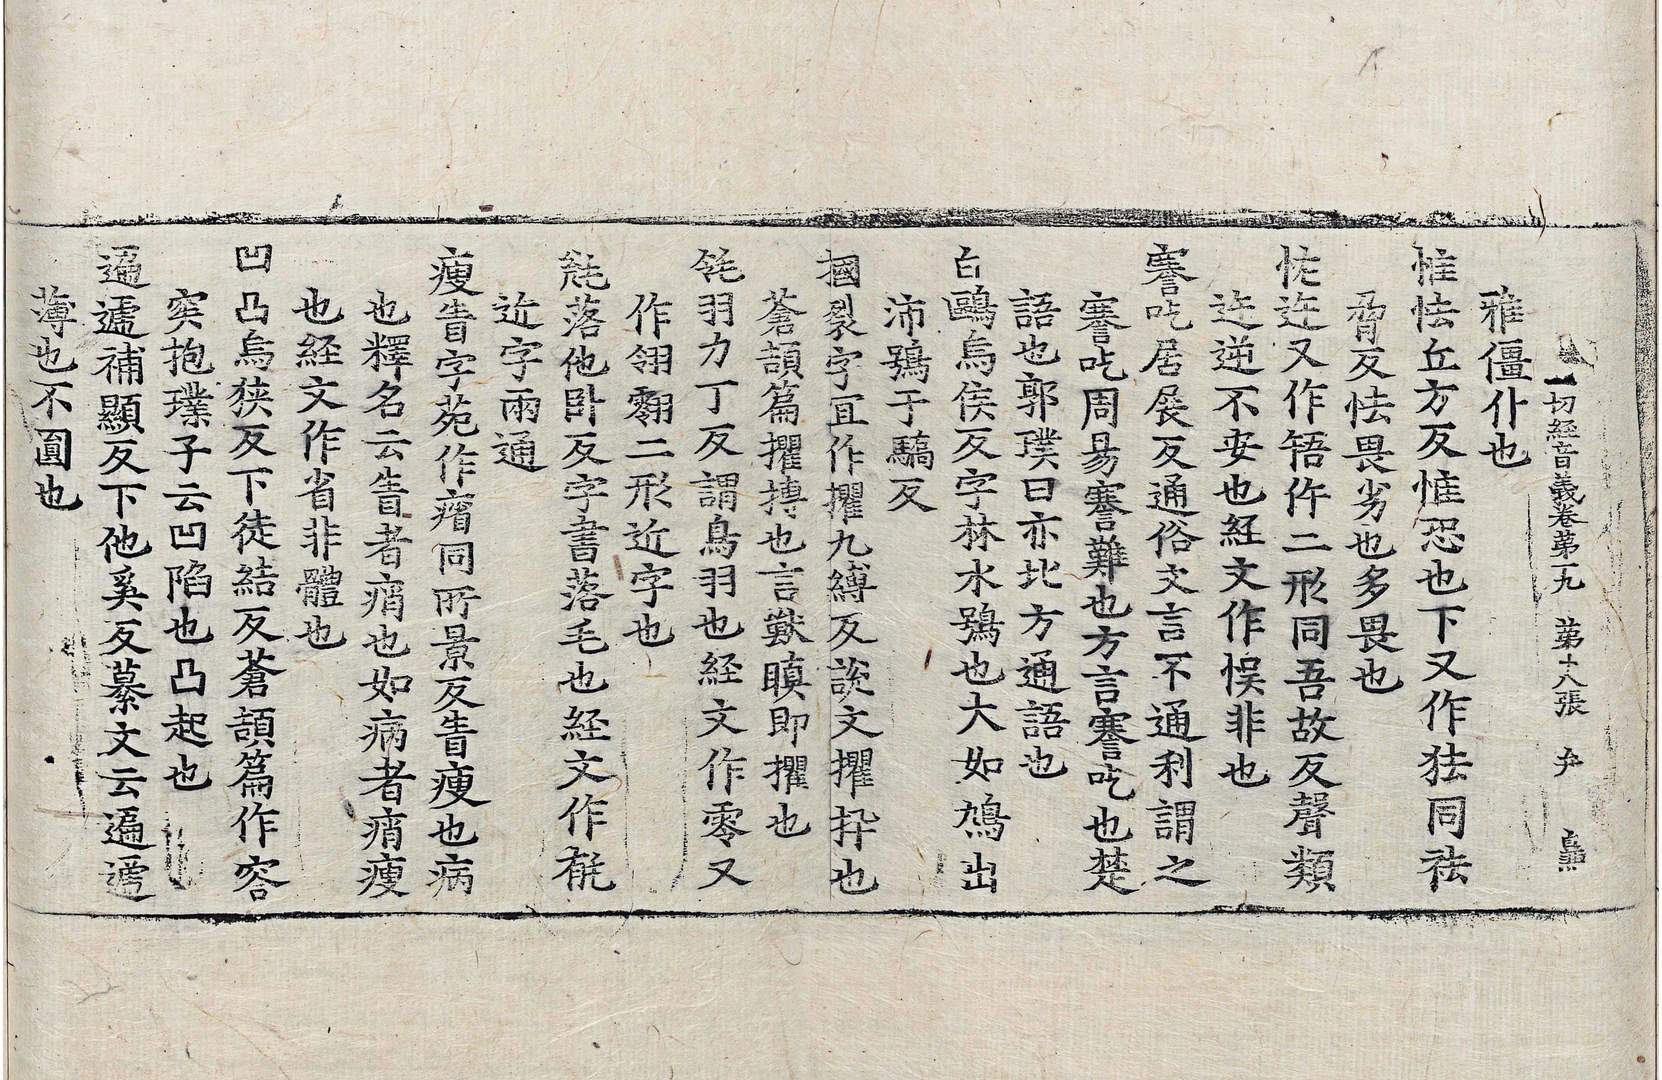 一切経音義卷第十九 第十八張 尹
雅僵仆也
惟怯丘方反惟恐也下又作㹤同祛
脅反怯畏劣也多畏也
恠迕又作䎸仵二形同吾故反聲類
迕逆不安也経文作悮非也
謇吃居展反通俗文言不通利謂之
謇吃周易謇難也方言謇吃也楚
語也郭璞曰亦北方通語也
白鷗烏侯反字林水鴞也大如鳩出
沛鴞于驕反
摑裂字冝作攫九縛反說文攫扴也
蒼頡篇攫搏也言獸瞋即攫也
㲝羽力丁反謂鳥羽也経文作零又
作翎䨩二形近字也
毻落他卧反字書落毛也経文作毻
近字兩通
瘦眚字苑作㾪同所景反眚瘦也病
也釋名云眚者痟也如病者痟瘦
也経文作省非體也
凹凸烏狭反下徒結反蒼頡篇作容
突抱璞子云凹陷也凸起也
遍㔸補顯反下他奚反纂文云遍遞
薄也不圓也